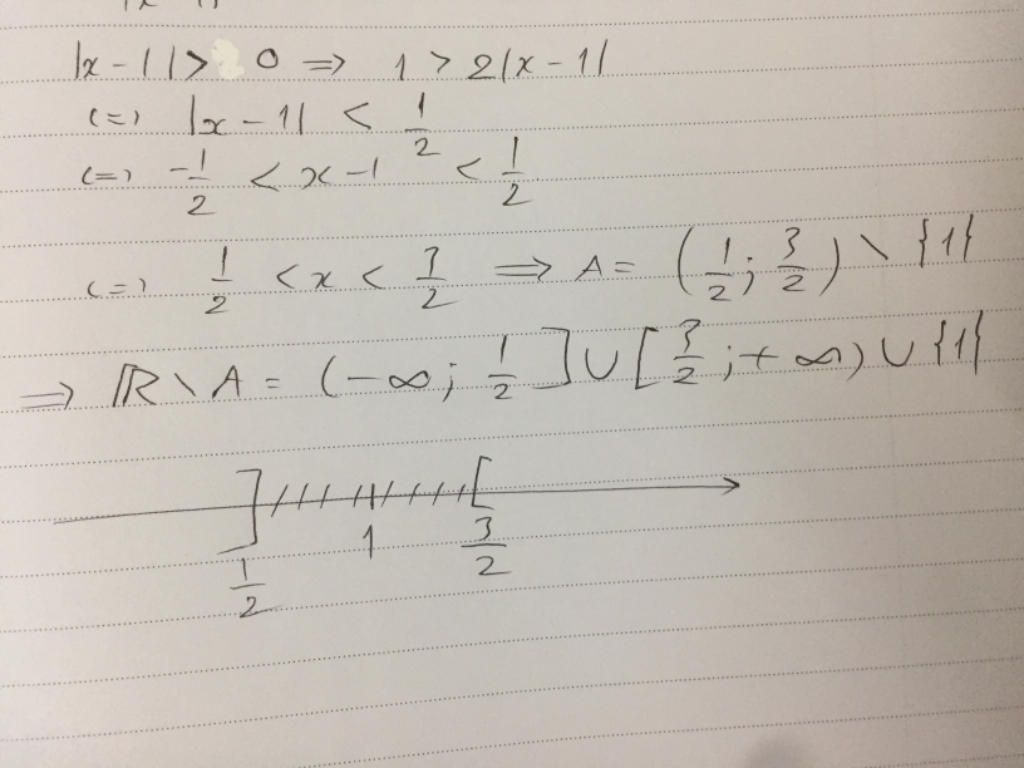 |x - 1| > 0 => 1 > 2|x - 1|
(=) |x - 1| < 1/2
(=) -1/2 < x - 1 < 1/2
(=) 1/2 < x < 3/2 => A = (1/2; 3/2) \ {1}
=> ℝ \ A = (-∞; 1/2] ∪ [3/2; +∞) ∪ {1}
] [
1/2 1 3/2